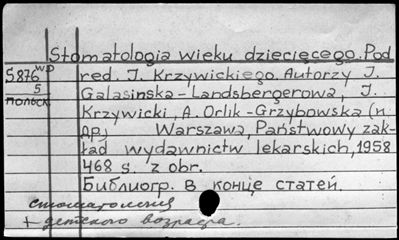 Stomatologia wieku dziecięcego. Pod
S876 WD red. J. Krzywickiego. Autorzy J.
5 Galasińska-Landsbergerowa, J.
польск. Krzywicki, A. Orlik-Grzybowska (и
др.) Warszawa, Państwowy zak-
ład wydawnictw lekarskich, 1958
468 s. z obr.
Библиогр. в конце статей.
стоматология
+ детского возраста.